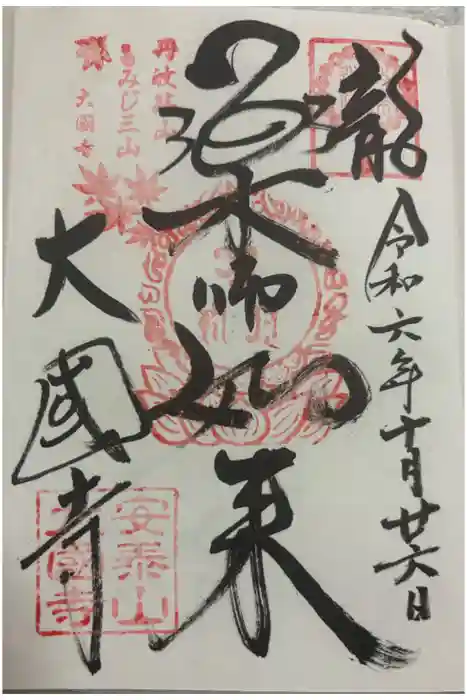 龍
令和六年十月廿六日
薬師如来
丹波篠山
もみじ三山
大國寺
大國寺
安泰山
大國寺